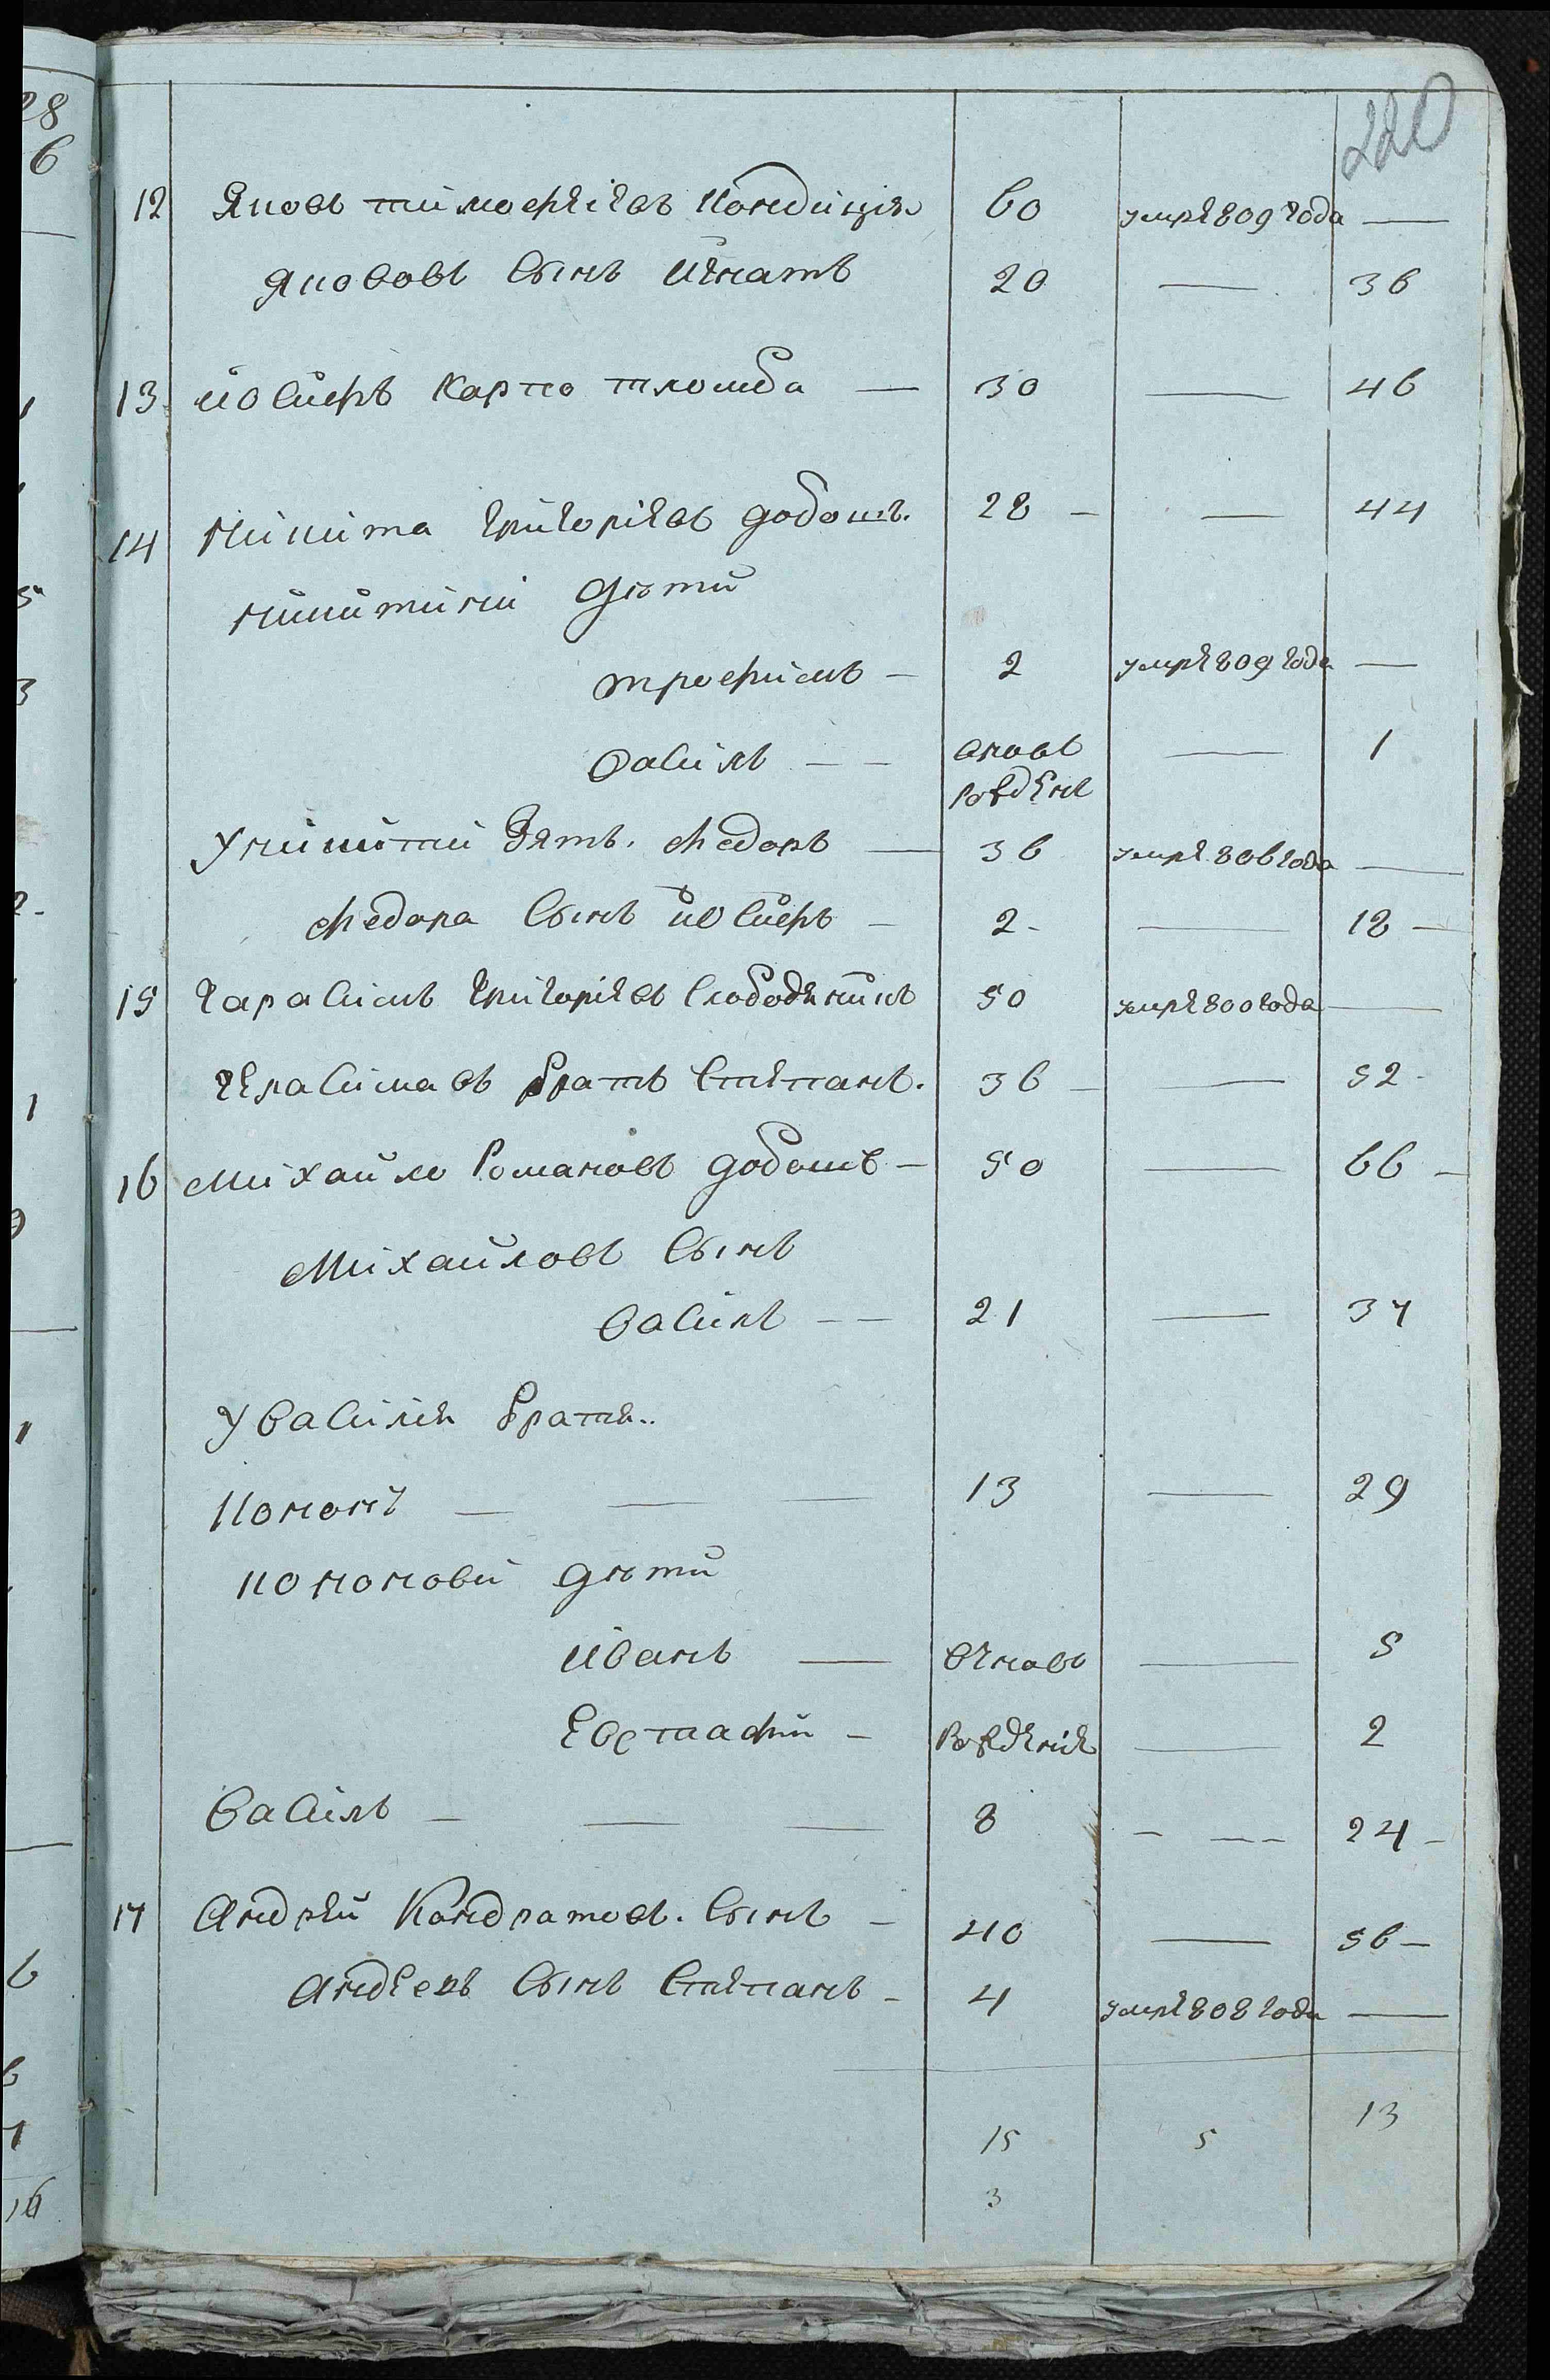 220
12 Яковъ тимофеiевъ Кондиция 60 умре 809 года —
Яковова Сынъ Игнатъ 20 — 36
13 иосифъ Карпо 30 — 46
14 Никита григориевъ добошъ 28 — 44
никитини дѣти
трофимъ — 2 умре 809 года —
василъ — — вновь рожденъ — 1
у никити Зять федоръ — 36 умре 806 года —
федора Сынъ иосифъ — 2 — 18
15 Гарасимъ григориевъ Слободянинъ 50 умре 800 года —
Герасимовъ братъ Степанъ 36 — 52
16 Михайло Романовъ добошъ — 50 — 66
Михайловъ Сынъ
василъ — — 21 — 37
у василия братя
Кононъ — — — 13 — 29
кононови дѣти
иванъ — вновь — 5
Евстафий — рождение — 2
василъ — — — 8 — 24
17 Андрей Кондратовъ Сынъ — 40 — 56
Андреевъ Сынъ Степанъ — 4 умре 808 года —
15 5 13
3